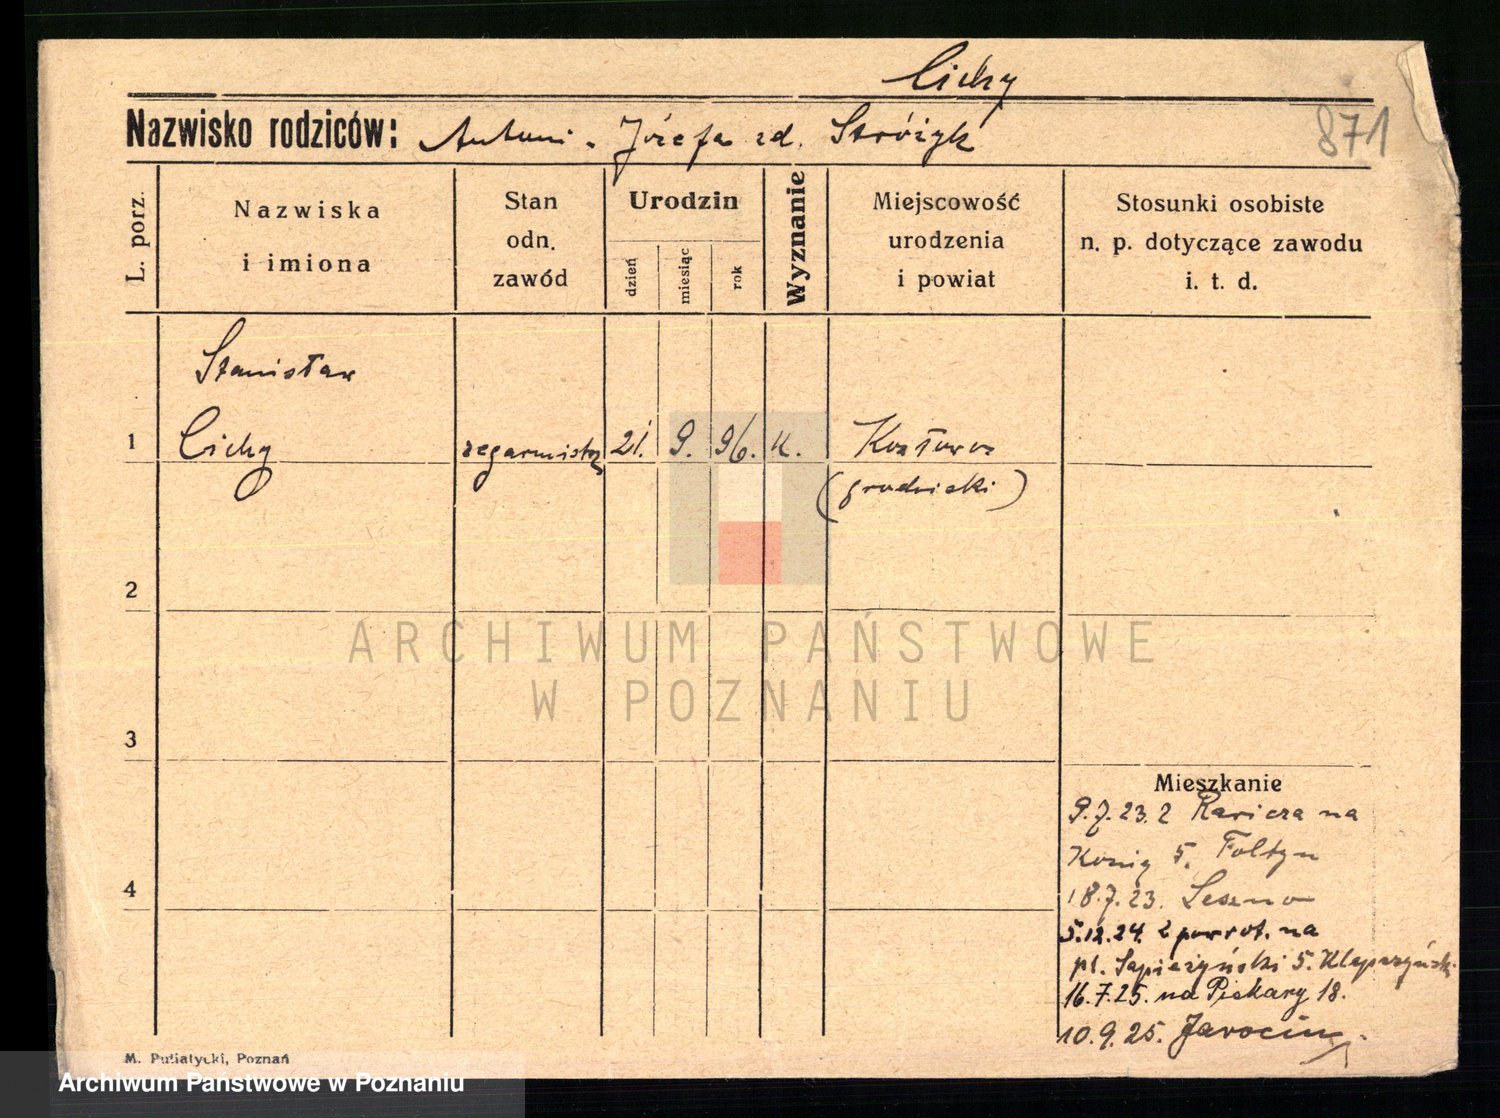 Cichy
Nazwisko rodziców: Antoni. Józefa zd. Stróżyk
871
L. porz.
Nazwiska
i imiona
Stan
odn.
zawód
Urodzin
dzień
miesiąc
rok
Wyznanie
Miejscowość
urodzenia
i powiat
Stosunki osobiste
n. p. dotyczące zawodu
i. t. d.
Stanisław
1 Cichy zegarmistrz 21. 9. 96. k. Kozłowo
(grodziski)
2
ARCHIWUM PAŃSTWOWE
W POZNANIU
3
Mieszkanie
9.7.23. z Rawicza na
König 5. Foltyn
4
18.7.23. Leszno
5.12.24. z powrot. na
pl. Sapieżyński 5. Kleparzyński
16.7.25. na Piekary 18.
10.9.25. Jarocin
M. Putiatycki, Poznań
Archiwum Państwowe w Poznaniu